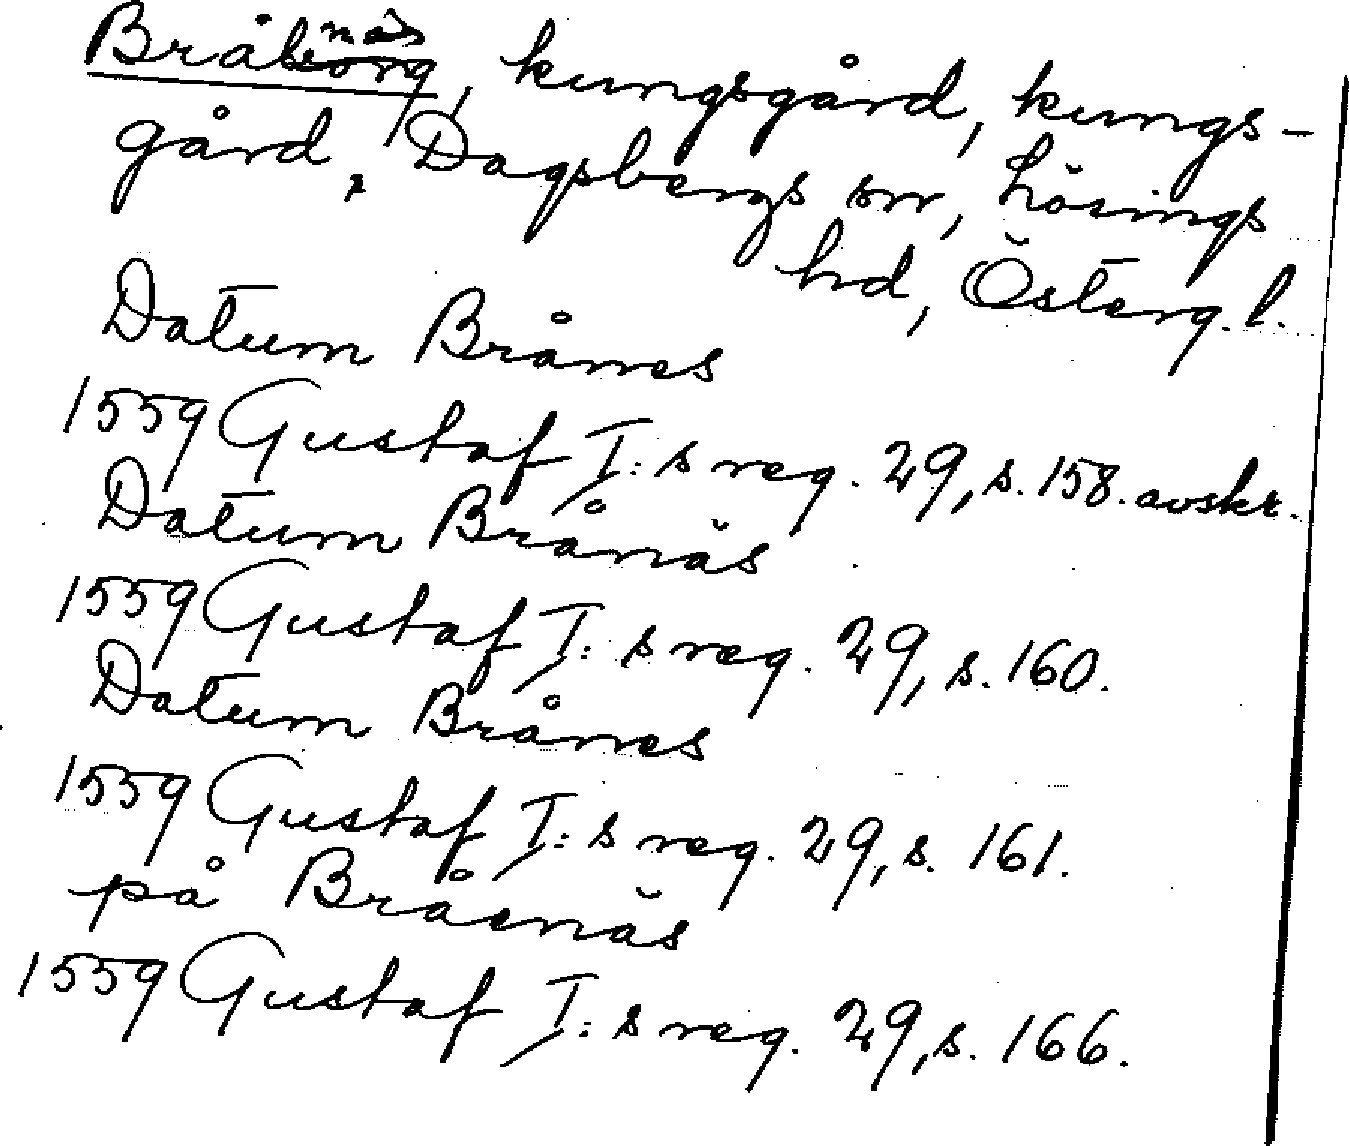 Bråborg näs, kungsgård, kungs-
gård, Dagsbergs sn, Lösings
hd, Österg. l.
Datum Brånes
1559 Gustaf I:s reg. 29, s. 158. avskr.
Datum Brånäs
1559 Gustaf I:s reg. 29, s. 160.
Datum Brånes
1559 Gustaf I:s reg. 29, s. 161.
på Bråenäs
1559 Gustaf I:s reg. 29, s. 166.